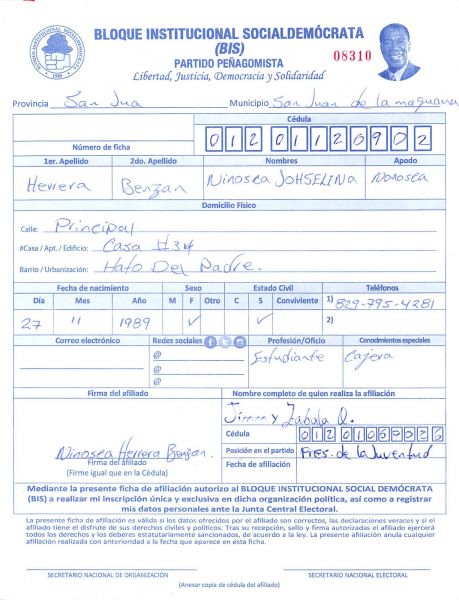 BLOQUE INSTITUCIONAL SOCIALDEMÓCRATA
(BIS)
PARTIDO PEÑAGOMISTA
Libertad, Justicia, Democracia y Solidaridad
08310
Provincia San Jua Municipio San Juan de la maguana
Cédula
Número de ficha 01201120902
1er. Apellido 2do. Apellido Nombres Apodo
Herrera Benzan Ninosca JOHSELINA Nonosca
Domicilio Físico
Calle: Principal
#Casa / Apt. / Edificio: Casa #34
Barrio / Urbanización: Hato Del Padre.
Fecha de nacimiento Sexo Estado Civil Teléfonos
Día Mes Año M F Otro C S Conviviente 1) 829-795-4281
27 11 1989 ✓ ✓ 2)
Correo electrónico Redes sociales Profesión/Oficio Conodmientos especiales
@ Estudiante Cajera
@
@
Firma del afiliado Nombre completo de quien realiza la afiliación
Jimmy Zabala Q.
Cédula
Ninosca Herrera Benzan.
Firma del afiliado
(Firme igual que en la Cédula)
Posición en el partido Pres. de la Juventud
Fecha de afiliación
Mediante la presente ficha de afiliación autorizo al BLOQUE INSTITUCIONAL SOCIAL DEMÓCRATA
(BIS) a realizar mi inscripción única y exclusiva en dicha organización política, así como a registrar
mis datos personales ante la Junta Central Electoral.
La presente ficha de afiliación es válida si los datos ofrecidos por el afiliado son correctos, las declaraciones veraces y si el
afiliado tiene el disfrute de sus derechos civiles y políticos. Tras su recepción, sello y firma autorizadas el afiliado ejercerá
todos los derechos y los deberes estatutariamente sancionados, de acuerdo a la ley. La presente afiliación anula cualquier
afiliación realizada con anterioridad a la fecha que aparece en esta ficha.
SECRETARIO NACIONAL DE ORGANIZACIÓN SECRETARIO NACIONAL ELECTORAL
(Anexar copia de cédula del afiliado)